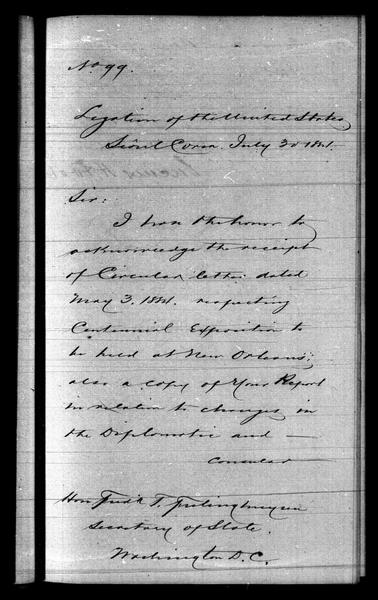 No 99.
Legation of the United States
Séoul Corea. July 30 1884.
Sir:
I have the honor to
acknowledge the receipt
of Circular letter dated
May 3. 1884. respecting
Centennial Exposition to
be held at New Orleans;
also a copy of Your Report
in relation to changes in
the Diplomatic and —
Consular
Hon Fredk T. Frelinghuysen
Secretary of State.
Washington D.C.